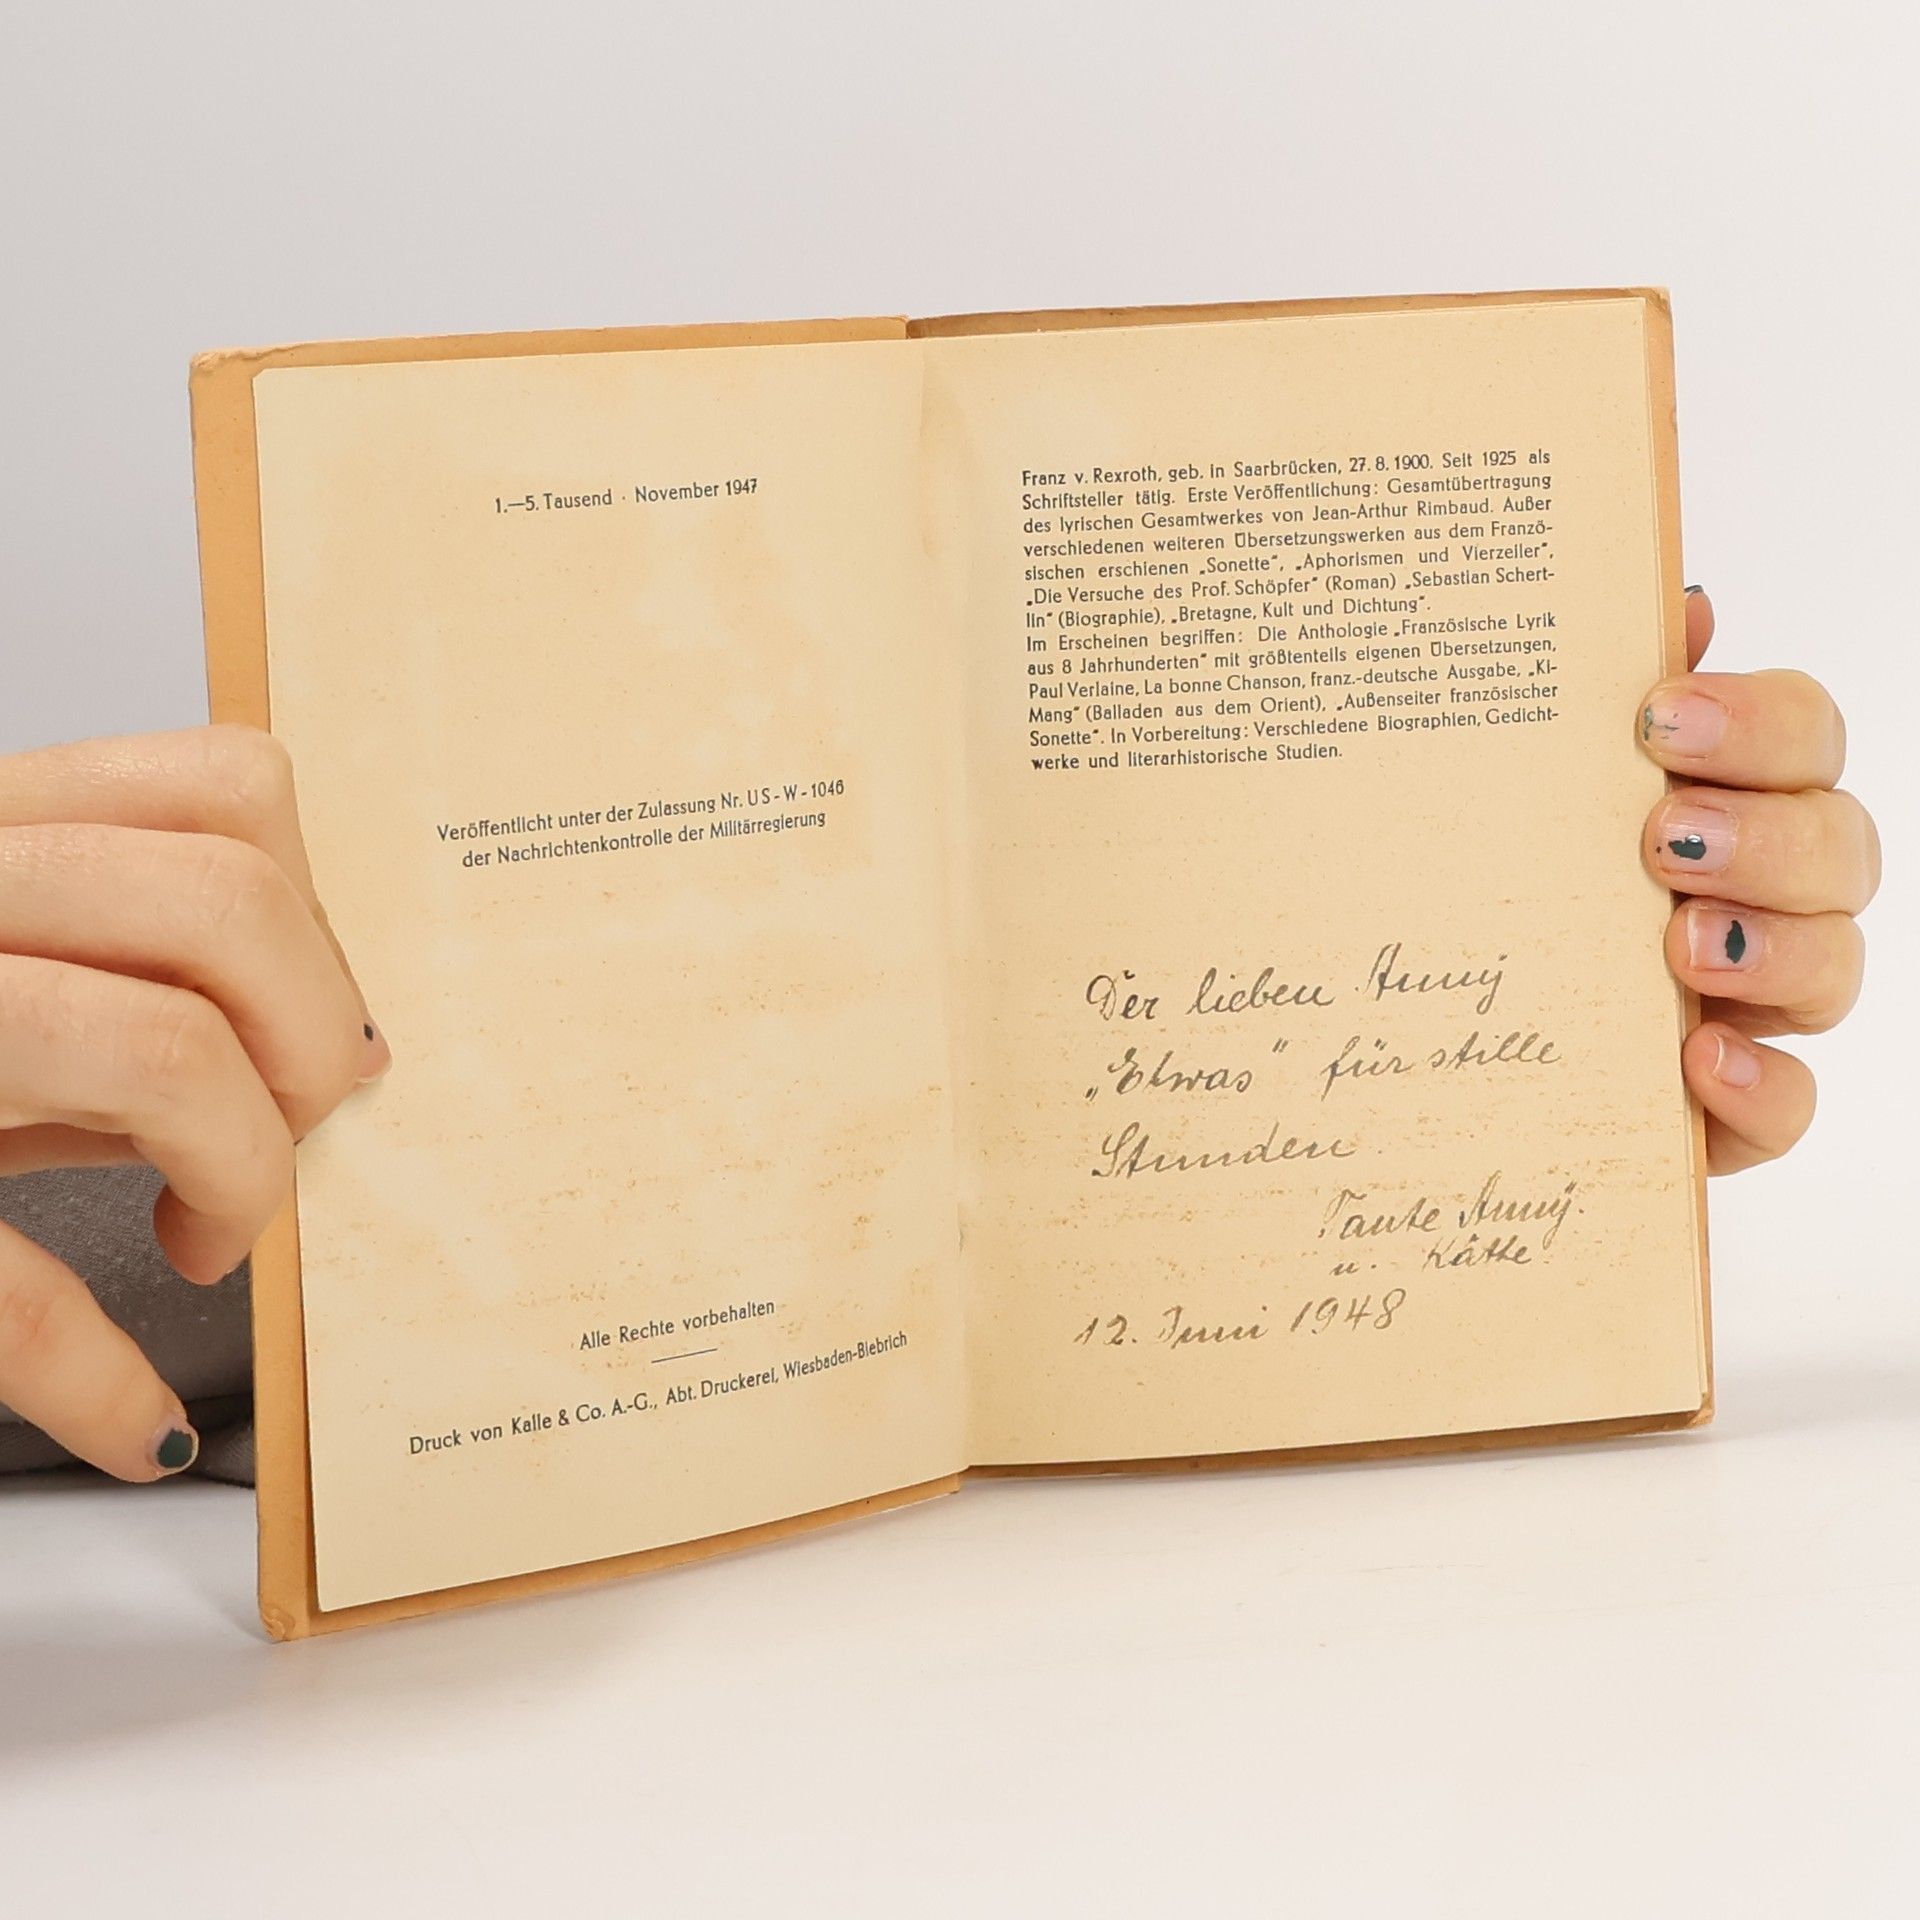 1.—5. Tausend · November 1947
Veröffentlicht unter der Zulassung Nr. US-W-1046
der Nachrichtenkontrolle der Militärregierung
Alle Rechte vorbehalten
Druck von Kalle & Co. A.-G., Abt. Druckerei, Wiesbaden-Biebrich
Franz v. Rexroth, geb. in Saarbrücken, 27. 8. 1900. Seit 1925 als
Schriftsteller tätig. Erste Veröffentlichung: Gesamtübertragung
des lyrischen Gesamtwerkes von Jean-Arthur Rimbaud. Außer
verschiedenen weiteren Übersetzungswerken aus dem Franzö-
sischen erschienen „Sonette“, „Aphorismen und Vierzeiler“,
„Die Versuche des Prof. Schöpfer“ (Roman) „Sebastian Schert-
lin“ (Biographie), „Bretagne, Kult und Dichtung“.
Im Erscheinen begriffen: Die Anthologie „Französische Lyrik
aus 8 Jahrhunderten“ mit größtenteils eigenen Übersetzungen,
Paul Verlaine, La bonne Chanson, franz.-deutsche Ausgabe, „Ki-
Mang“ (Balladen aus dem Orient), „Außenseiter französischer
Sonette“. In Vorbereitung: Verschiedene Biographien, Gedicht-
werke und literarhistorische Studien.
Der lieben Anny
„Etwas“ für stille
Stunden
Tante Anny.
u. Käthe.
12. Juni 1948